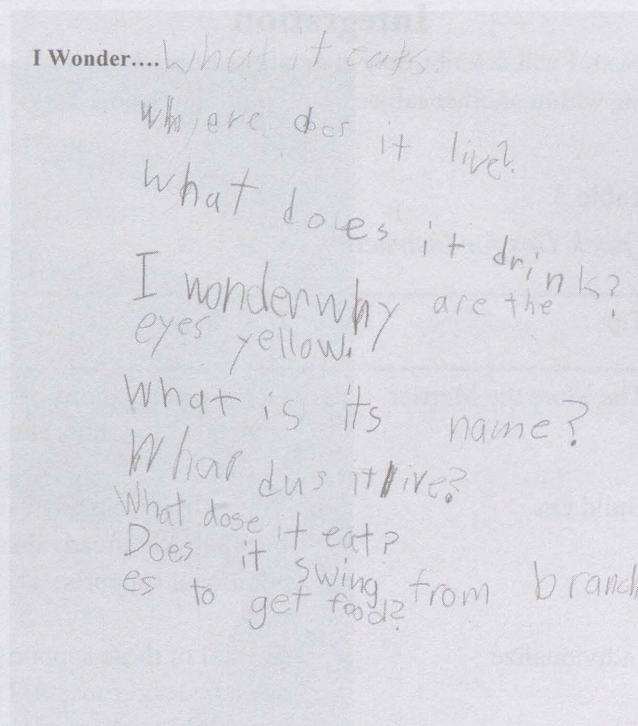 I Wonder.... What it eats.
Where does it live?
What does it drink?
I wonder why are the
eyes yellow.
What is its name?
Whar dus it live?
What dose it eat?
Does it swing from branch
es to get food?